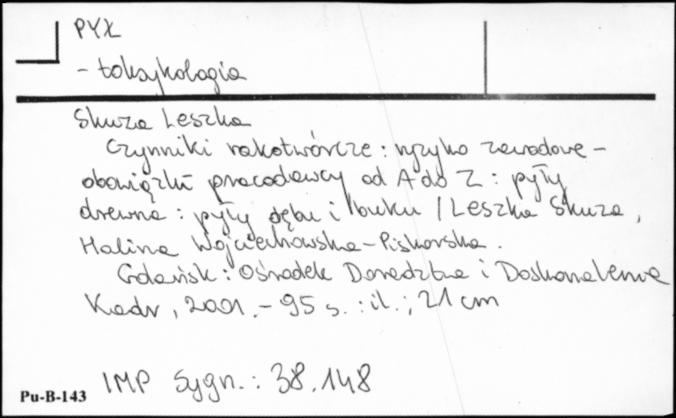 PYŁ
- toksykologia
Skuza Leszka
Czynniki rakotwórcze : ryzyko zawodowe -
obowiązki pracodawcy od A do Z : pyły
drewna : pyły dębu i buku / Leszka Skuza,
Halina Wojciechowska-Piskorska.
Gdańsk : Ośrodek Doradztwa i Doskonalenia
Kadr, 2001. - 95 s. : il. ; 21 cm
IMP Sygn. : 38.148
Pu-B-143